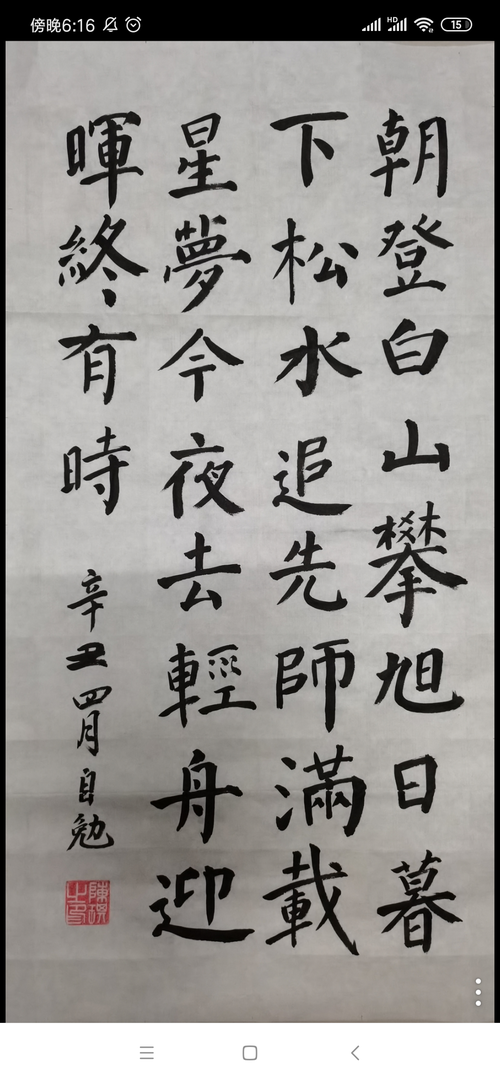 傍晚6:16
HD
15
朝登白山攀旭日暮
下松水追先師滿載
星夢今夜去輕舟迎
暉終有時
辛丑四月自勉